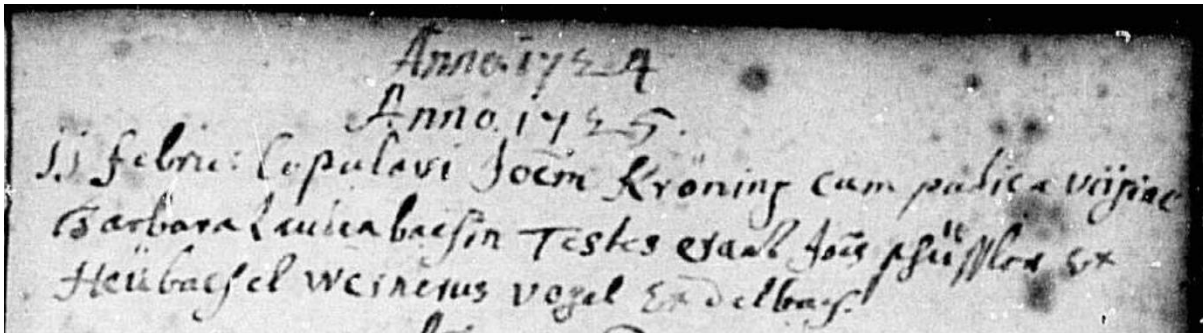 Anno. 1724
Anno. 1725.
11 febru: Copulavi Joem Kröning cum pudica virgine
Barbara Lauderbachin Testes erant Jois
Heübachel Wernerus Vogel Ex delbach